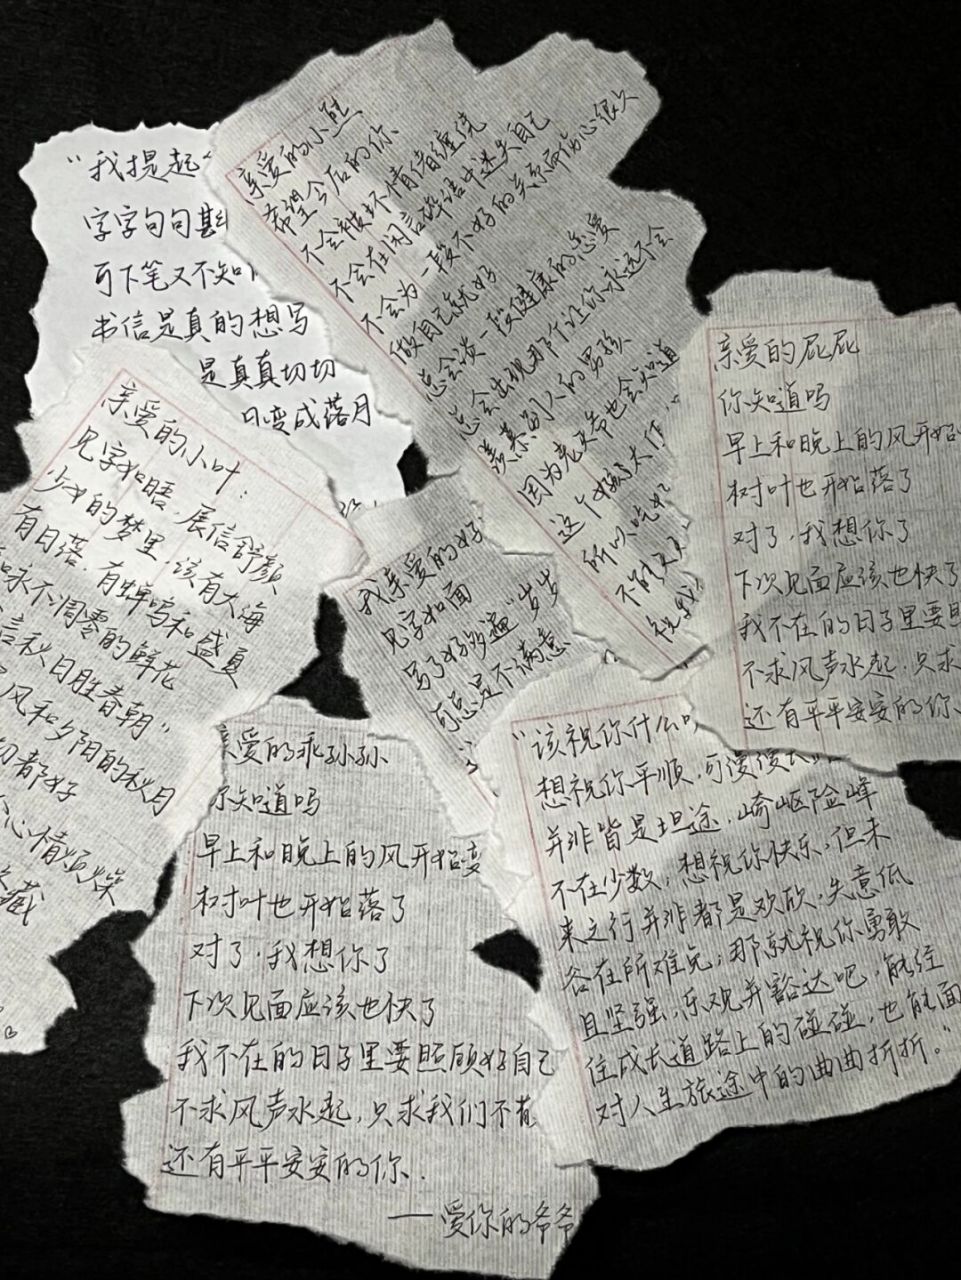 "我提起
字字句句斟
可下笔又不知
书信是真的想写
是真真切切
变成落月
亲爱的小熊
希望今后的你
不会被坏情绪缠绕
不会在闲言碎语中迷失自己
不会为一段不好的关系而伤心很久
做自己就好
总会谈一段健康的恋爱
总会出现那个让你永远不会
羡慕别人的男孩
因为老天爷也会知道
这个好
所以吃好
不
祝我
亲爱的屁屁
你知道吗
早上和晚上的风开始
树叶也开始落了
对了，我想你了
下次见面应该也快了
我不在的日子里要照
不求风声水起，只求
还有平平安安的你、
亲爱的小叶：
见字如晤，展信舒颜
少女的梦里，该有大海
有日落，有蝉鸣和盛夏
和永不凋零的鲜花
言秋日胜春朝"
风和夕阳的秋月
切都好
心情烦燥
藏
我亲爱的好
见字如面
写了好多遍"岁岁
可总是不满意
亲爱的乖孙孙
你知道吗
早上和晚上的风开始变
树叶也开始落了
对了，我想你了
下次见面应该也快了
我不在的日子里要照顾好自己
不求风声水起，只求我们不有
还有平平安安的你.
——爱你的爷爷
"该祝你什么
想祝你平顺，可漫漫
并非皆是坦途，崎岖险峰
不在少数，想祝你快乐，但未
来之行并非都是欢欣，失意低
谷在所难免；那就祝你勇敢
且坚强，乐观并豁达吧，能经
住成长道路上的碰碰，也能面
对人生旅途中的曲曲折折。"